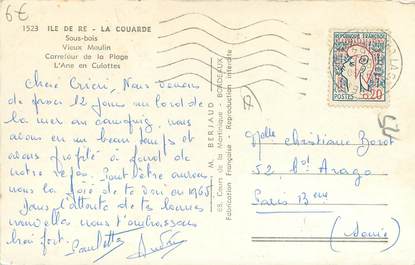 6€
1523 ILE DE RE - LA COUARDE
Sous-bois
Vieux Moulin
Carrefour de la Plage
L'Ane en Culottes
Nous venons
de passer 12 jours au bord de
la mer au camping nous
avons eu un beau temps et
avons profité à fond de
notre repos. Peut être aurons
nous la joie de te voir en 1965
Dans l'attente de tes bonnes
nouvelles nous t'embrassons
bien fort.
M. BERJAUD - BORDEAUX
68, Cours de la Martinique
Fabrication Française - Reproduction interdite
REPUBLIQUE FRANÇAISE
POSTES 0,20
17
Melle Christiane Borot
52 Bd Arago
Paris 13eme
(Seine)